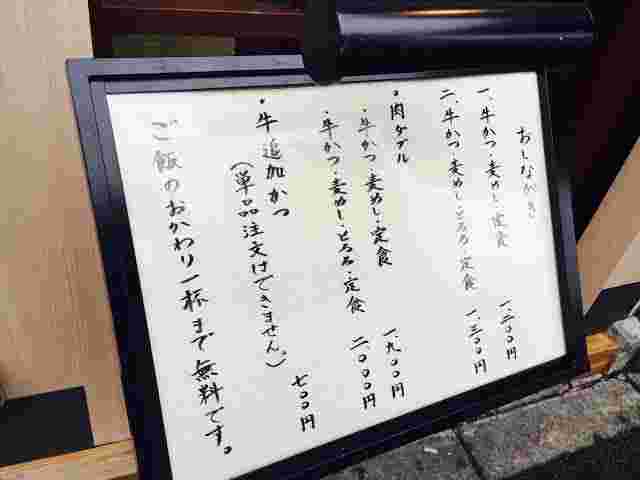 おしながき
一、牛かつ・麦めし・定食 一、二〇〇円
二、牛かつ・麦めし・とろろ・定食 一、三〇〇円
・肉ダブル
・牛かつ・麦めし・定食 一、九〇〇円
・牛かつ・麦めし・とろろ・定食 二、〇〇〇円
・牛 追加かつ 七〇〇円
(単品注文はできません。)
ご飯のおかわり一杯まで無料です。